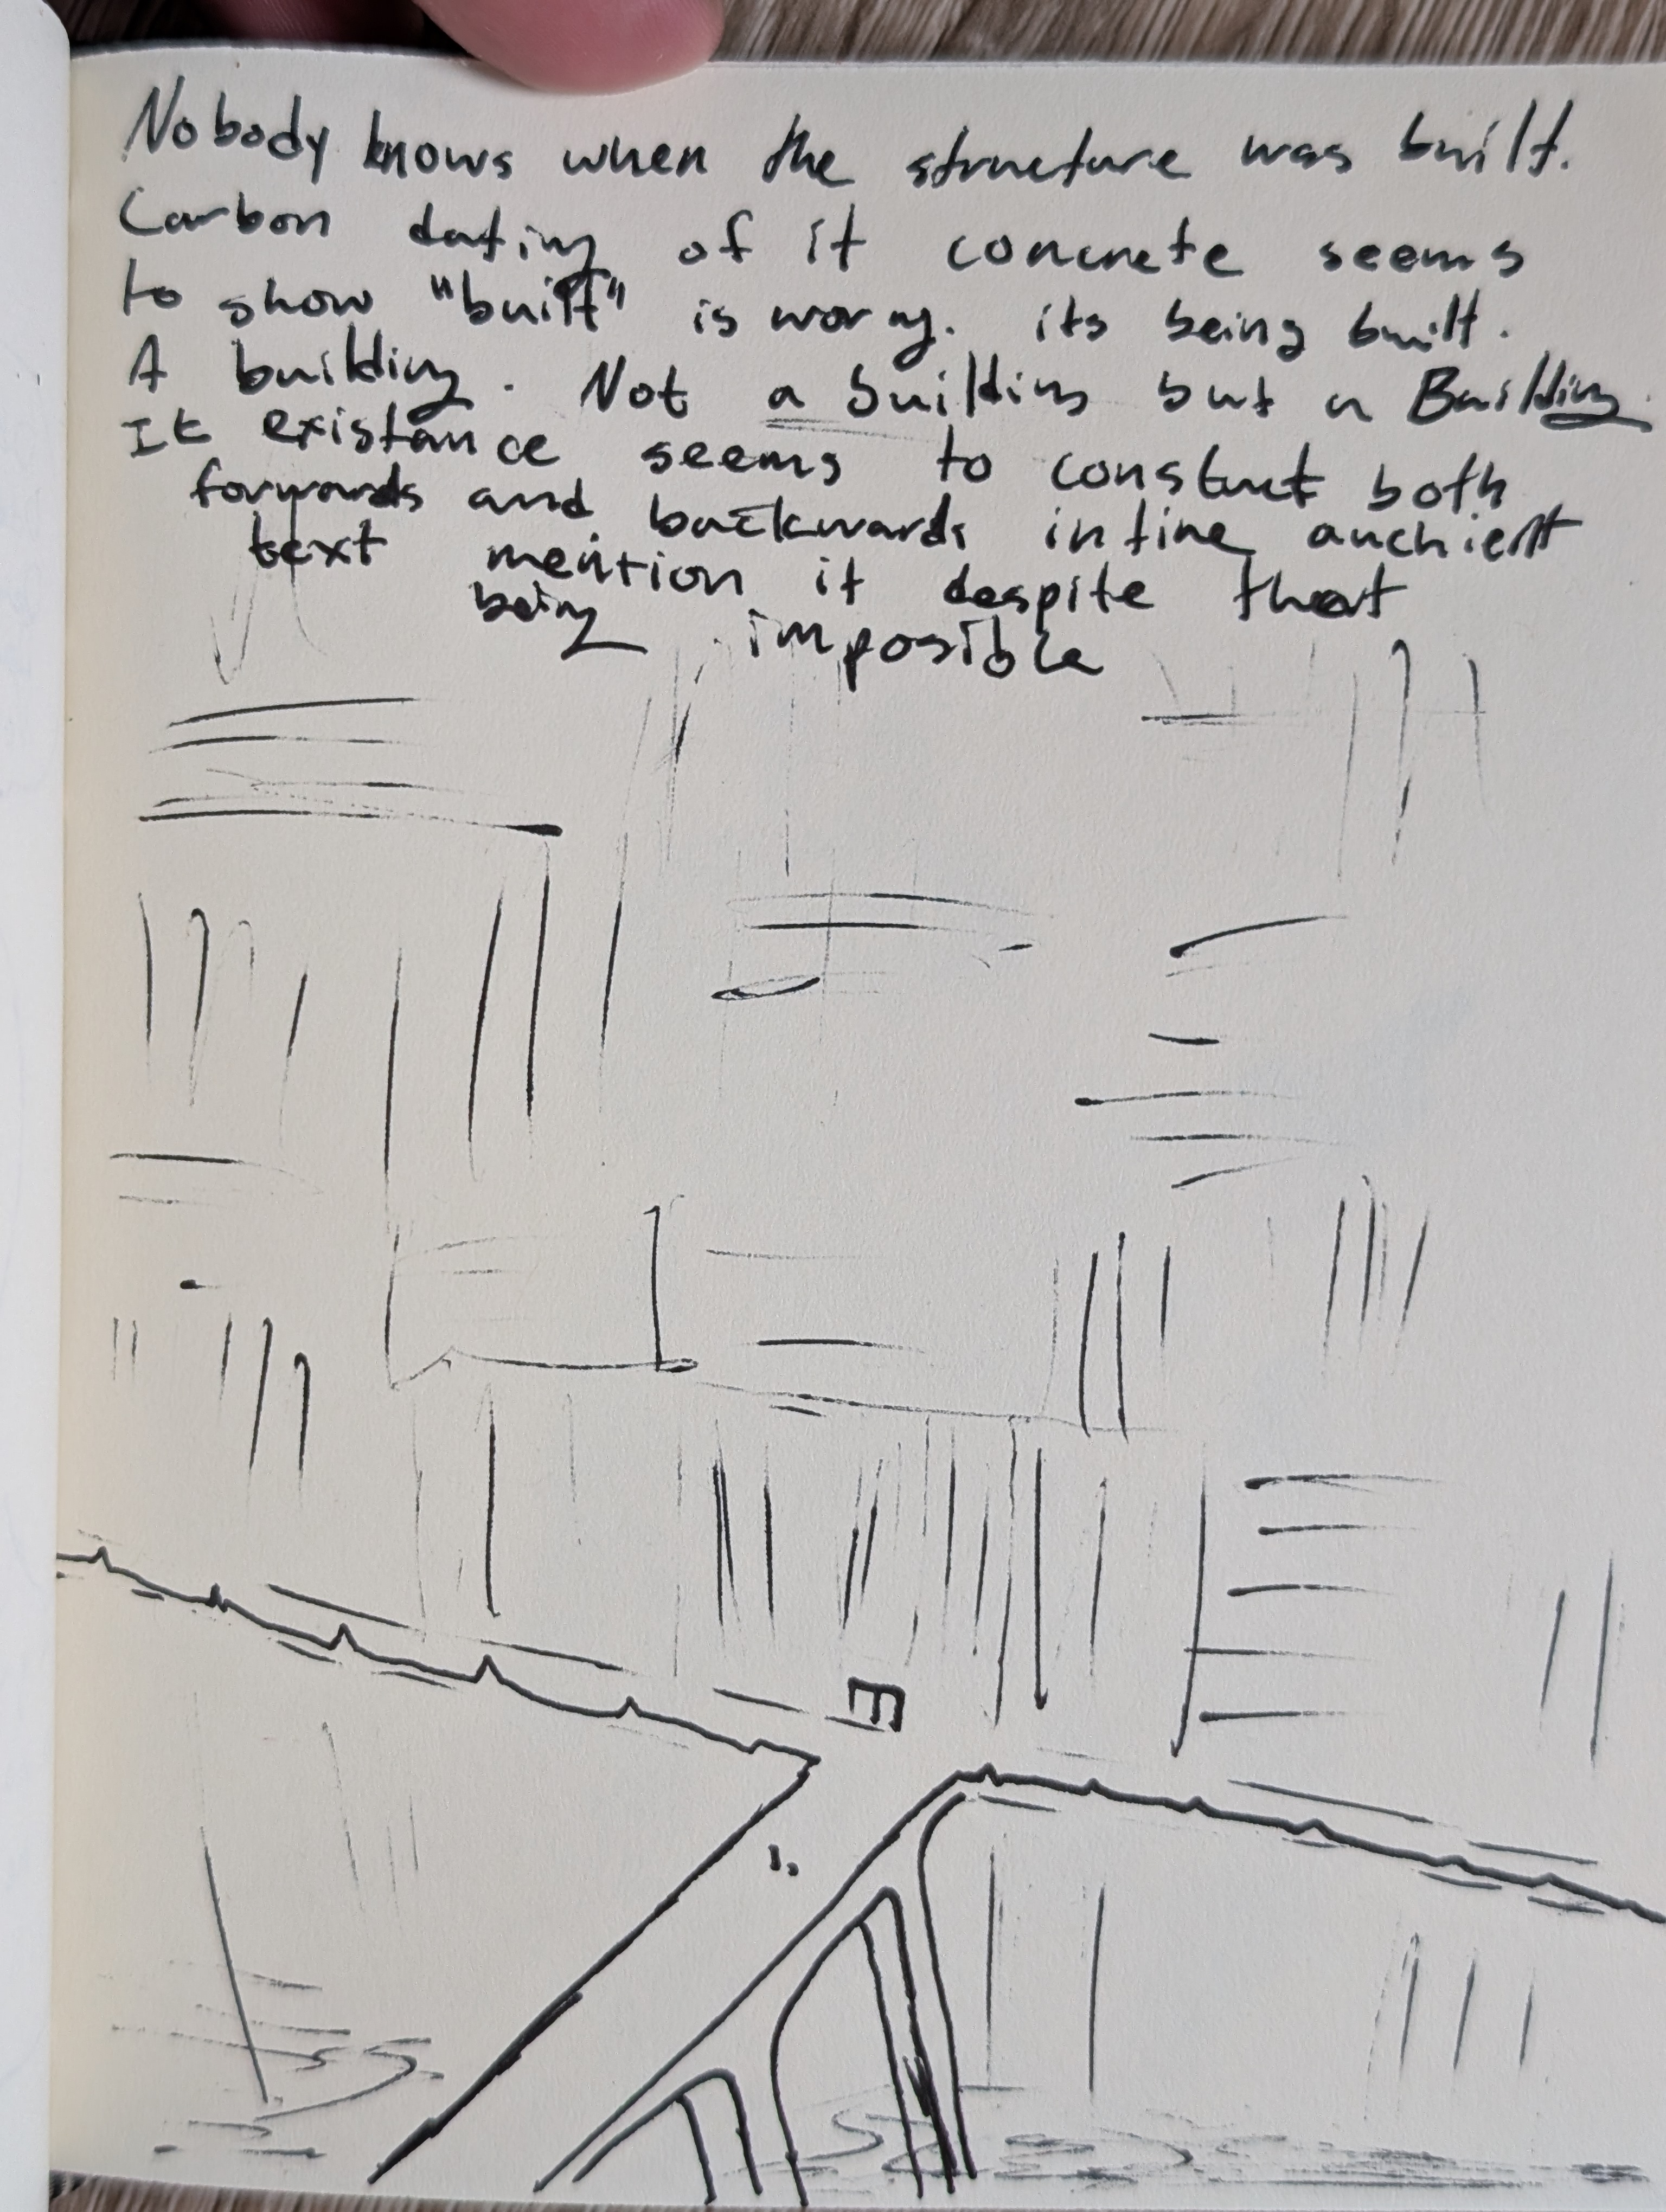 Nobody knows when the structure was built.
Carbon dating of it concrete seems
to show "built" is worng. its being built.
A building. Not a building but a Building.
It existance seems to constuct both
forwards and backwards in time anchient
text mention it despite that
being imposible